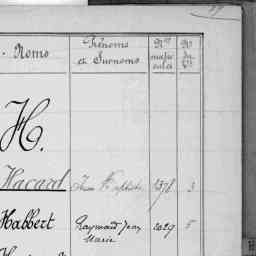 Noms
Prénoms
et Surnoms
Nos
matri-
cules
No
du
H.
Hacard Jean Bptiste 1378 3
Habbert Raymond Jean 2029 5
Marie